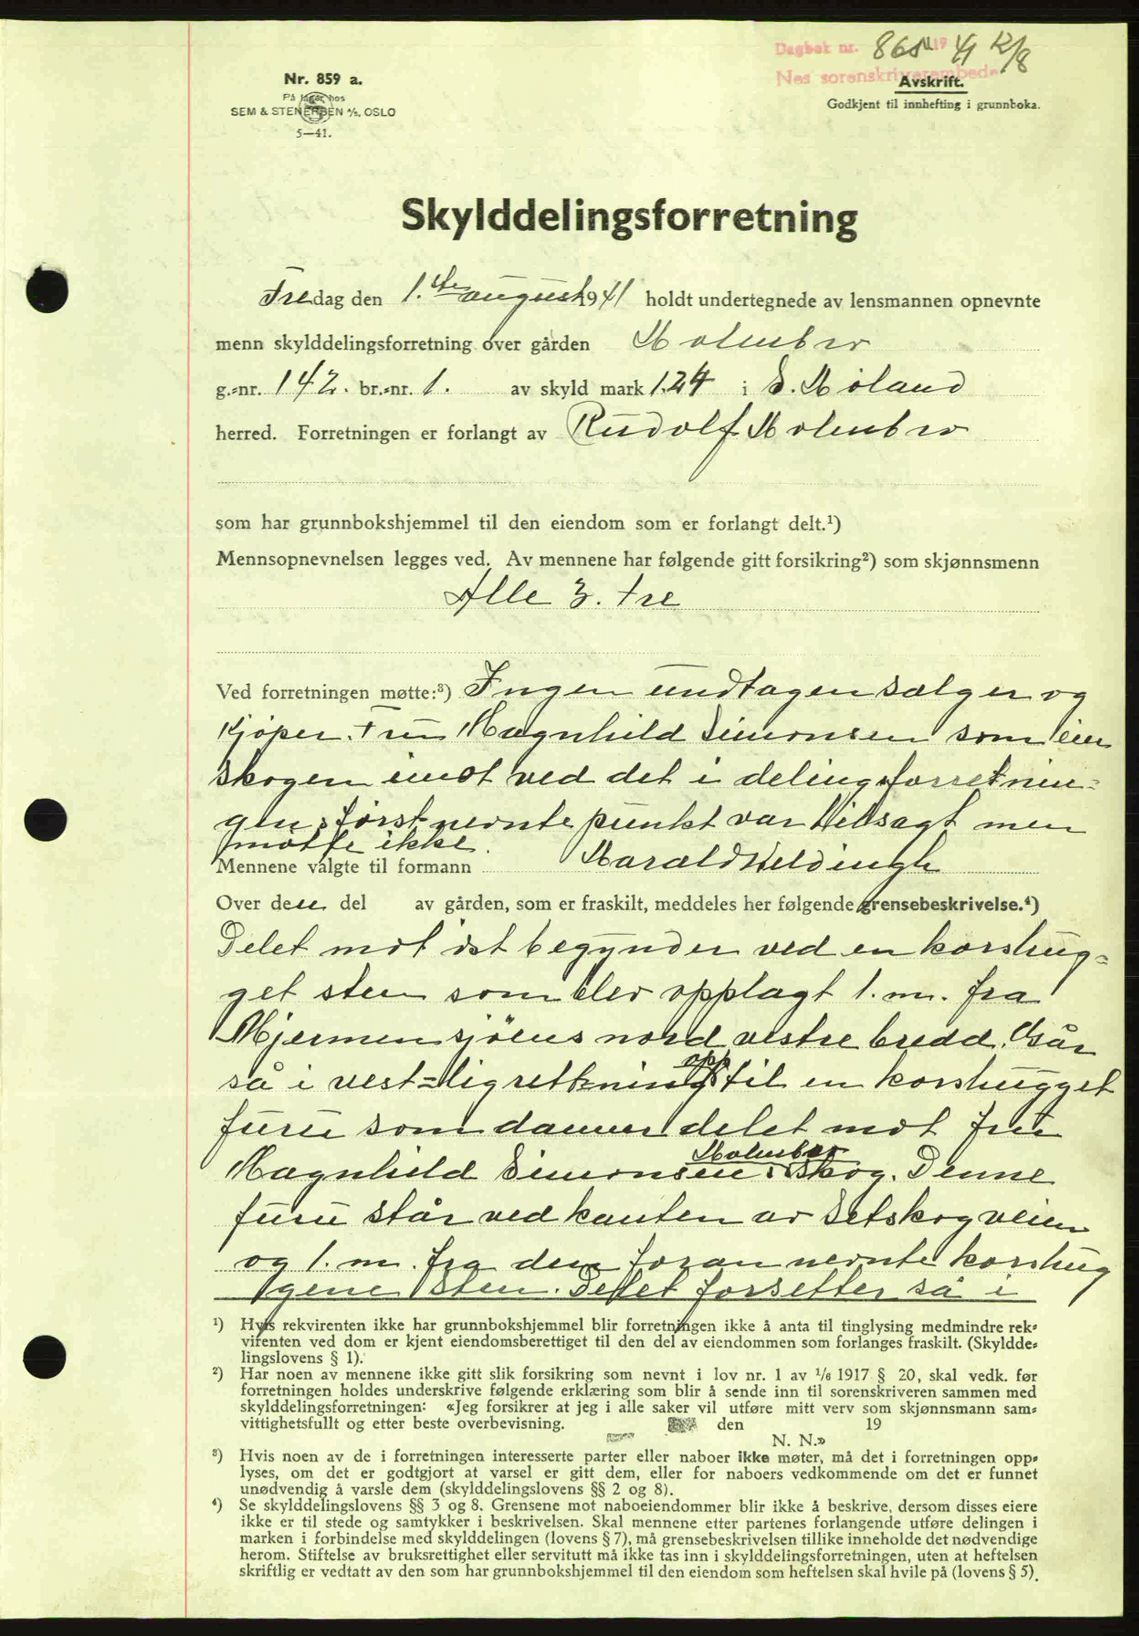 Dagbok nr. 868 19 41 12/8
Nes sorenskriverembede
Nr. 859 a.
På lager hos
SEM & STENERSEN A/S. OSLO
5—41.
Avskrift.
Godkjent til innhefting i grunnboka.
Skylddelingsforretning
Fredag den 1.ste august 1941 holdt undertegnede av lensmannen opnevnte
menn skylddelingsforretning over gården Holmbro
g.-nr. 142. br.-nr. 1. av skyld mark 1.24 i S. Høland
herred. Forretningen er forlangt av Rudolf Holmbro
som har grunnbokshjemmel til den eiendom som er forlangt delt.¹)
Mennsopnevnelsen legges ved. Av mennene har følgende gitt forsikring²) som skjønnsmenn
Alle 3. tre
Ved forretningen møtte:³) Ingen undtagen sælger og
kjøper. Fru Magnhild Simonsen som eier
skogen imot ved det i delingsforretnin-
gen først nevnte punkt var tilsagt men
møtte ikke.
Mennene valgte til formann Harald Heldingh
Over den del av gården, som er fraskilt, meddeles her følgende grensebeskrivelse.⁴)
Delet mot øst begynder ved en korshug-
get sten som blev opplagt 1. m. fra
Mjermensjøens nordvestre bredd. Går
så i vest-lig rettning opp til en korshugget
furu som danner delet mot fru
Magnhild Simonsen Holmbro skog. Denne
furu står ved kanten av Setskogveien
og 1. m. fra den foran nevnte korshug
gene sten. Delet forsetter så i
¹) Hvis rekvirenten ikke har grunnbokshjemmel blir forretningen ikke å anta til tinglysing medmindre rek-
virenten ved dom er kjent eiendomsberettiget til den del av eiendommen som forlanges fraskilt. (Skyldde-
lingslovens § 1).
²) Har noen av mennene ikke gitt slik forsikring som nevnt i lov nr. 1 av 1/6 1917 § 20, skal vedk. før
forretningen holdes underskrive følgende erklæring som blir å sende inn til sorenskriveren sammen med
skylddelingsforretningen: «Jeg forsikrer at jeg i alle saker vil utføre mitt verv som skjønnsmann sam-
vittighetsfullt og etter beste overbevisning. den 19
N. N.»
³) Hvis noen av de i forretningen interesserte parter eller naboer ikke møter, må det i forretningen opp-
lyses, om det er godtgjort at varsel er gitt dem, eller for naboers vedkommende om det er funnet
unødvendig å varsle dem (skylddelingslovens §§ 2 og 8).
⁴) Se skylddelingslovens §§ 3 og 8. Grensene mot naboeiendommer blir ikke å beskrive, dersom disses eiere
ikke er til stede og samtykker i beskrivelsen. Skal mennene etter partenes forlangende utføre delingen i
marken i forbindelse med skylddelingen (lovens § 7), må grensebeskrivelsen tillike inneholde det nødvendige
herom. Stiftelse av bruksrettighet eller servitutt må ikke tas inn i skylddelingsforretningen, uten at heftelsen
skriftlig er vedtatt av den som har grunnbokshjemmel til den eiendom som heftelsen skal hvile på (lovens § 5).